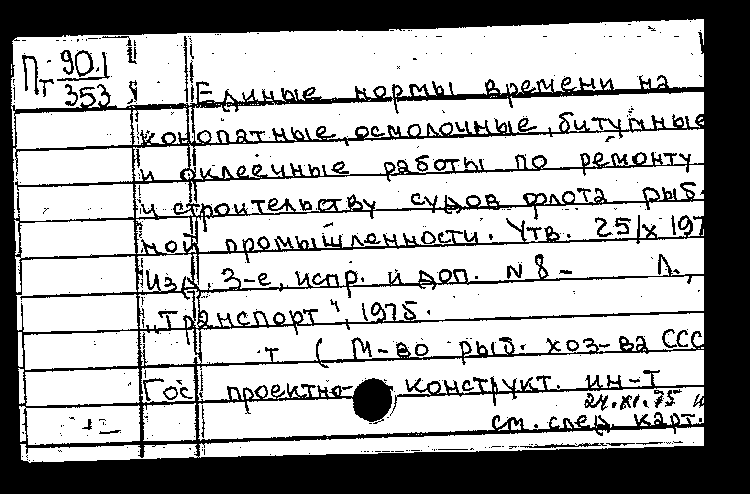 Пт 90.1
353
Единые нормы времени на
конопатные, осмолочные, битумные
и оклеечные работы по ремонту
и строительству судов флота рыб-
ной промышленности. Утв. 25/X 197
Изд. 3-е, испр. и доп. N 8- Л.,
„Транспорт", 1975.
т ( М-во рыб. хоз-ва ССС
Гос проектно- конструкт. ин-т
24.XI.75
см. след. карт.